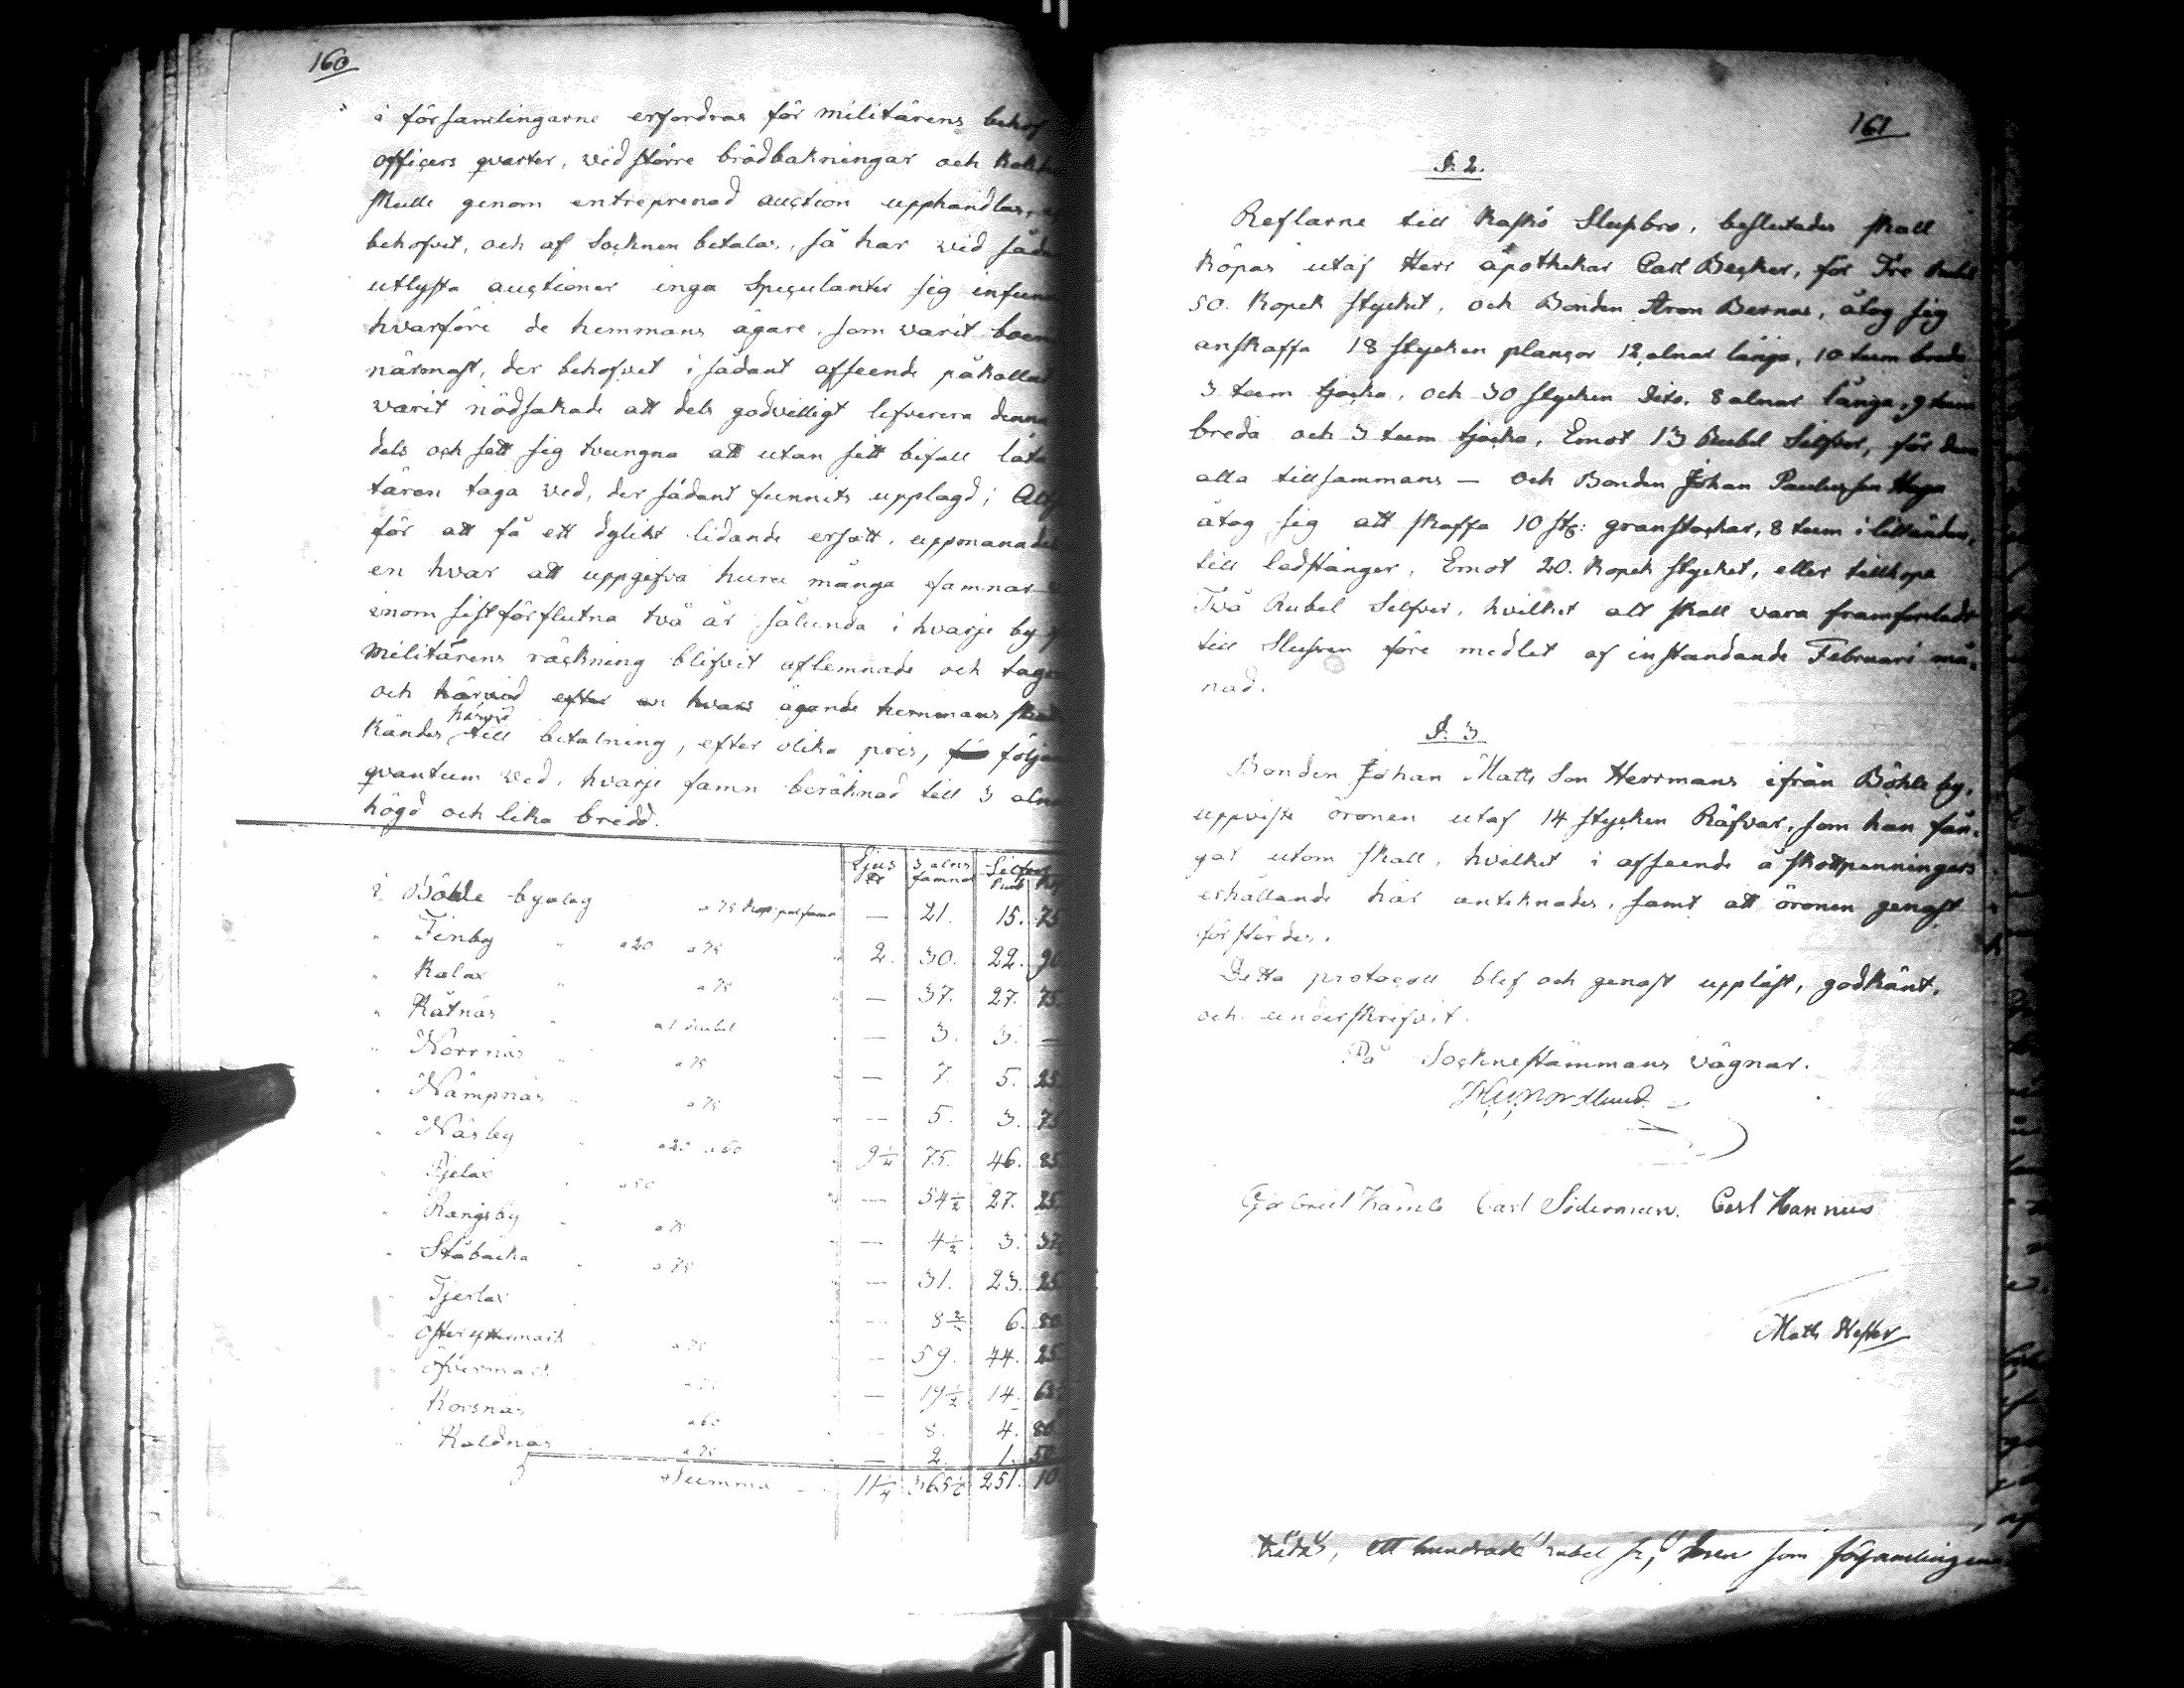 160
i församlingarne erfordras för militärens behof
officers qvarter, vid större brödbakningar och
skulle genom entreprenad auction upphandlas,
behofvet, och af Socknen betalas, så har vid
utlysta auctioner inga Speculanter sig
hvarföre de hemmans ägare, som varit
närmast, der behofvet i sådant afseende
varit nödsakade att dels godvilligt lefverera denna
dels och sett sig tvungna att utan sitt bifall
taga ved, der sådant funnits upplagd;
för att få ett dylikt lidande ersatt, uppmanades
en hvar att uppgifva huru många famnar
inom sistförflutna två år sålunda i hvarje by
militärens räckning blifvit aflemnade och
och härvid efter hvars ägande hemmans
härvid
kändes till betalning, efter olika pris,
qvantum ved, hvarje famn beräknad till 3
högd och lika bredd.
Ljus 3 alns famnar Silfver
i Böhle byalag a 75 Kop: per famn — 21. 15. 75
" Finby " a 20 a 75 2. 30. 22. 90
" Kalax " a 75 — 37. 27. 75
" Kåtnäs " a 1 Rubel — 3. 3. —
" Norrnäs " a 75 — 7. 5. 25
" Nämpnäs " a 75 — 5. 3. 75
" Näsby " a 20 a 60 9 1/4 75. 46. 85
" Pjelax " a 50 — 54 1/2 27. 25
" Rangsby " a 75 — 4 1/2 3. 37
" Ståbacka " a 75 — 31. 23. 25
" Tjerlax — 8 6. 80
" Öster yttermark a 75 — 59. 44. 25
" Öfvermark a 75 — 19 1/2 14. 63
" Korsnäs a 60 — 8. 4. 80
" Kaldnäs a 75 — 2. 1. 50
Summa 11 1/4 365 1/2 251. 10
161
§. 2.
Reflarne till Kaskö Slupbro, beslutades skall
köpas utaf Herr apothekar Carl Becker, för Tre Rubel
50. Kopek stycket, och Bonden Aron Bernas, åtog sig
anskaffa 18 stycken plancor 12 alnar långa, 10 tum breda
3 tum tjocka, och 30 stycken Dito. 8 alnar långa, 9 tum
breda och 3 tum tjocka, Emot 13 Rubel Silfver, för dem
alla tillsammans — och Bonden Johan Paulusson Haga
åtog sig att skaffa 10 st: granstockar, 8 tum i lilländen,
till ledstänger, Emot 20. Kopek stycket, eller tillhopa
Två Rubel Silfver, hvilket alt skall vara framforslade
till Slupen före medlet af instundande Februari må-
nad.
§. 3
Bonden Johan Matts Son Herrmans ifrån Böhle by,
uppviste öronen utaf 14 stycken Räfvar, som han fån-
gat utom skall, hvilket i afseende å skottpenningars
erhållande här antecknades, samt att öronen genast
förstördes.
Detta protocoll blef och genast uppläst, godkänt,
och underskrifvit.
På Sockne stämmans vägnar.
Nordlund.
Gabriel Carl Söderman. Carl Hannus
Matts Westers
ett hundrade rubel som församlingen